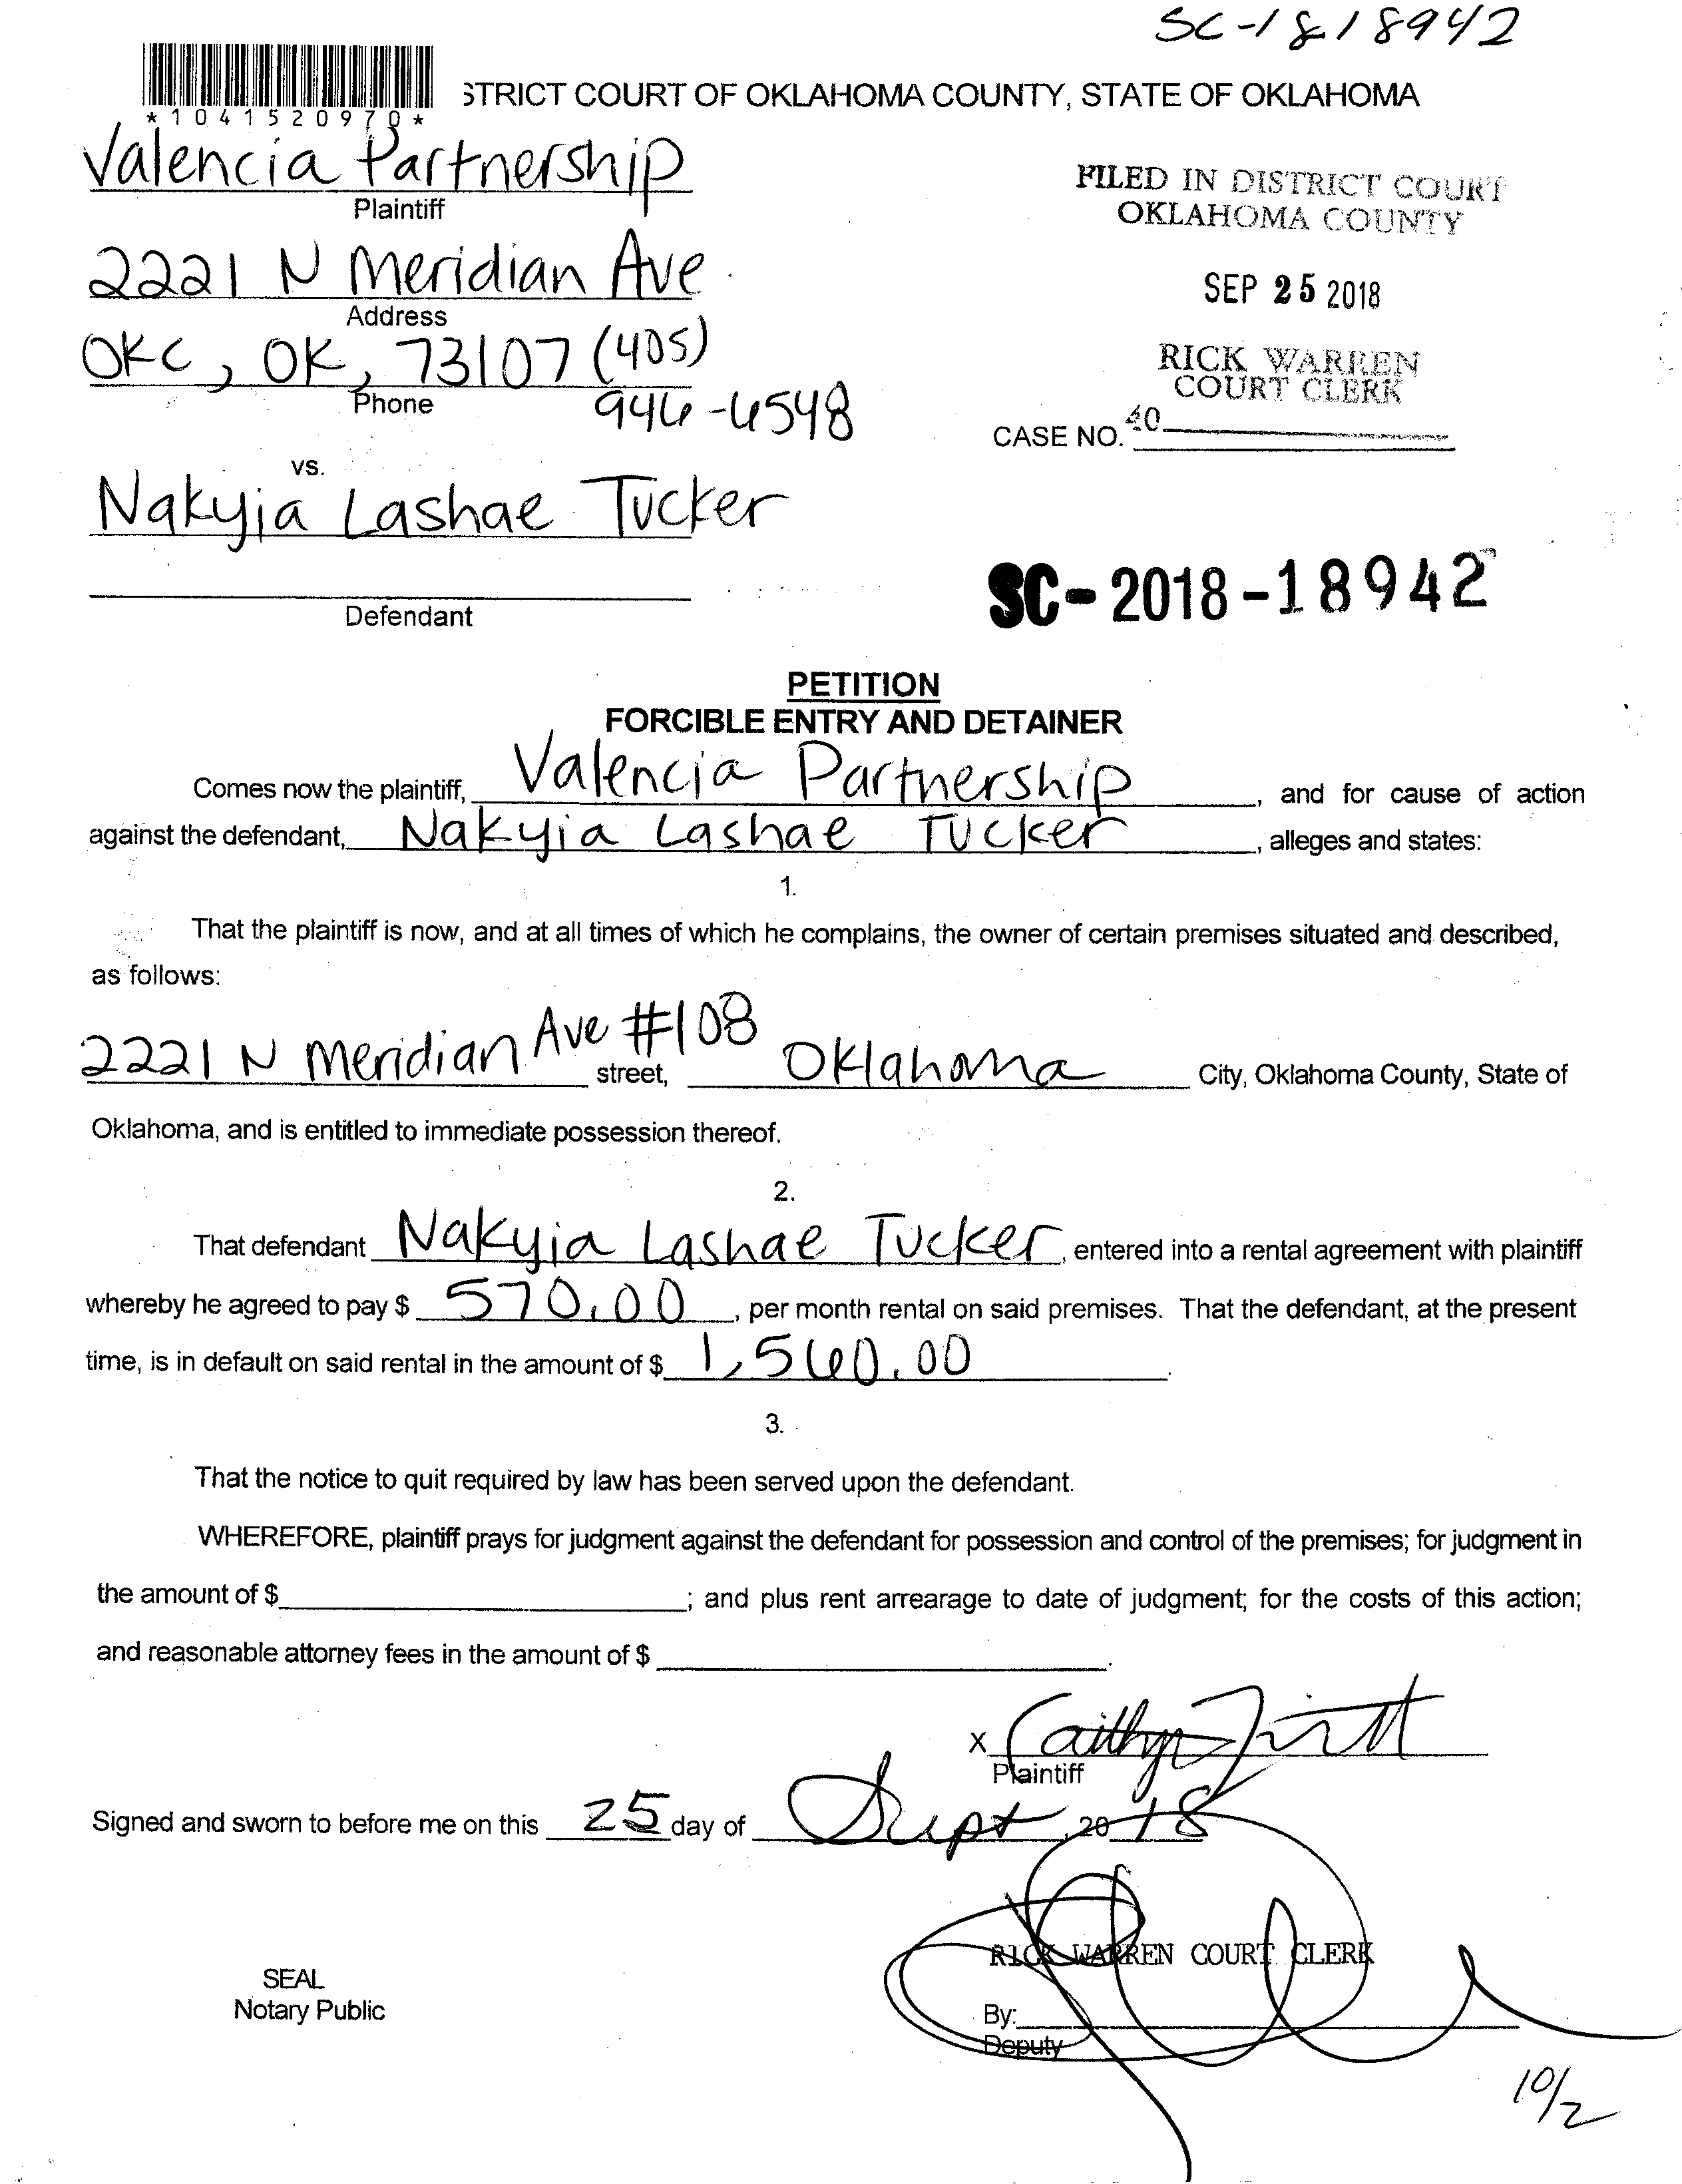 SC-1818942
*1041520970*
STRICT COURT OF OKLAHOMA COUNTY, STATE OF OKLAHOMA
Valencia Partnership
Plaintiff
FILED IN DISTRICT COURT
OKLAHOMA COUNTY
2221 N Meridian Ave
Address
SEP 25 2018
OKC, OK, 73107 (405)
Phone 946-6548
RICK WARREN
COURT CLERK
CASE NO. 40
vs.
Nakyia Lashae Tucker
Defendant
SC-2018-18942
PETITION
FORCIBLE ENTRY AND DETAINER
Comes now the plaintiff, Valencia Partnership, and for cause of action
against the defendant, Nakyia Lashae Tucker, alleges and states:
1.
That the plaintiff is now, and at all times of which he complains, the owner of certain premises situated and described,
as follows:
2221 N Meridian Ave #108 street, Oklahoma City, Oklahoma County, State of
Oklahoma, and is entitled to immediate possession thereof.
2.
That defendant Nakyia Lashae Tucker, entered into a rental agreement with plaintiff
whereby he agreed to pay $ 570.00, per month rental on said premises. That the defendant, at the present
time, is in default on said rental in the amount of $ 1,560.00.
3.
That the notice to quit required by law has been served upon the defendant.
WHEREFORE, plaintiff prays for judgment against the defendant for possession and control of the premises; for judgment in
the amount of $ ; and plus rent arrearage to date of judgment; for the costs of this action;
and reasonable attorney fees in the amount of $ .
X
Plaintiff
Signed and sworn to before me on this 25 day of Sept, 2018
RICK WARREN COURT CLERK
SEAL
Notary Public
By:
Deputy
10/2